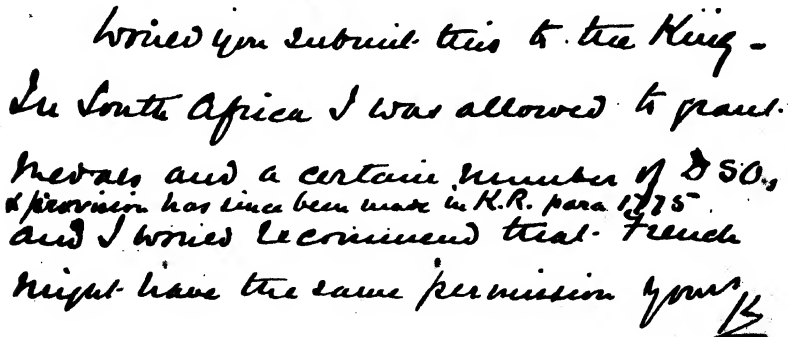 Would you submit this to the King -
In South Africa I was allowed to grant
medals and a certain number of DSO.s
& provision has since been made in K.R. para 1775
and I would recommend that French
might have the same permission yours
K